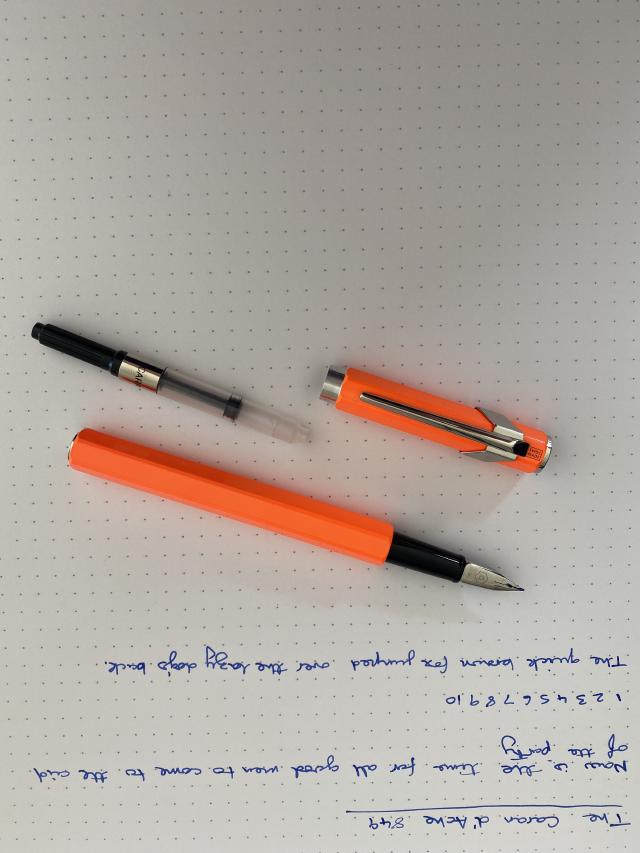 The Caran d'Ache 849
Now is the time for all good men to come to the aid
of the party
1 2 3 4 5 6 7 8 9 10
The quick brown fox jumped over the lazy dog's back.
CARA